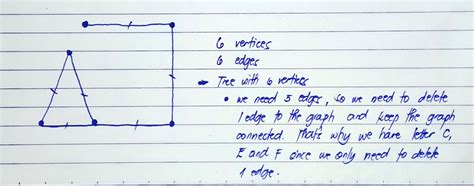 6 vertices
6 edges
→ Tree with 6 vertices
• we need 5 edges, so we need to delete
1 edge to the graph and keep the graph
connected. That's why we have letter C,
E and F since we only need to delete
1 edge.